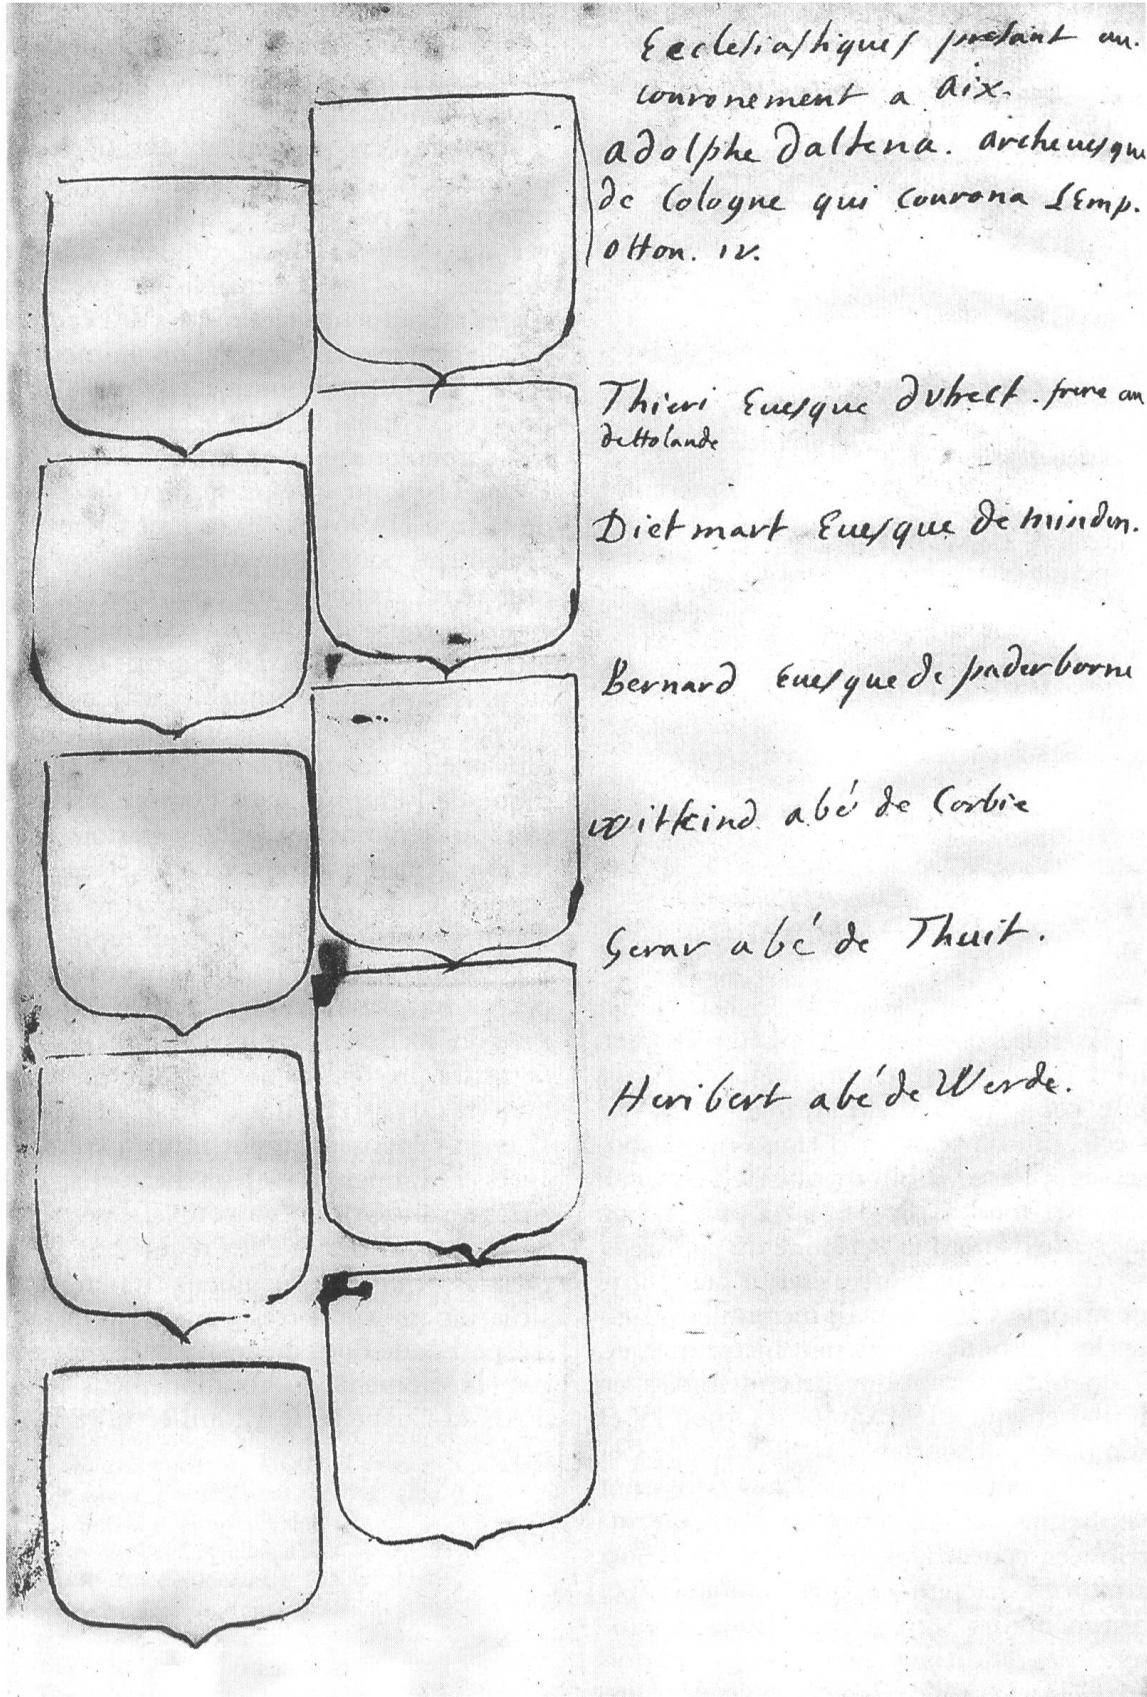 Ecclesiastiques presant au.
couronement a aix.
adolphe daltena. archeuesque
de Cologne qui courona LEmp.
otton. iv.
Thieri Euesque dutrect. frere au
deHolande
Dietmart Euesque de mindin.
Bernard Euesque de paderborne
witkind abé de Corbie
Gerar abé de Thuit.
Heribert abé de Werde.